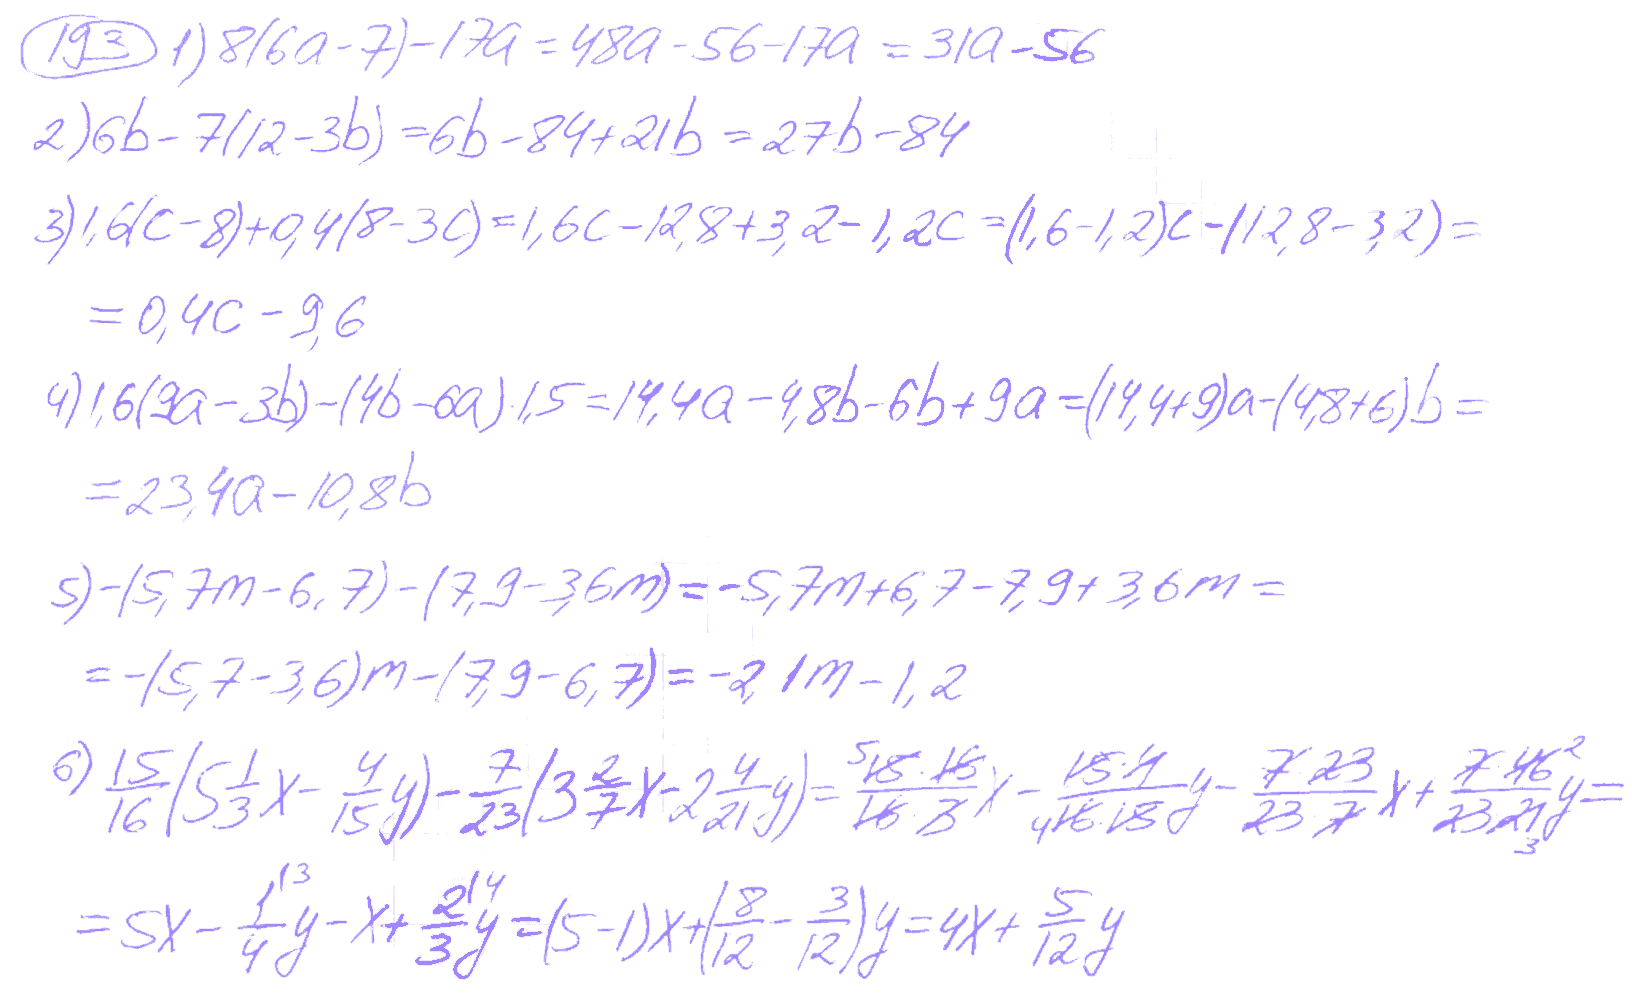 193 1) 8(6a-7)-17a=48a-56-17a=31a-56
2) 6b-7(12-3b)=6b-84+21b=27b-84
3) 1,6(c-8)+0,4(8-3c)=1,6c-12,8+3,2-1,2c=(1,6-1,2)c-(12,8-3,2)=
=0,4c-9,6
4) 1,6(9a-3b)-(4b-6a)·1,5=14,4a-4,8b-6b+9a=(14,4+9)a-(4,8+6)b=
=23,4a-10,8b
5) -(5,7m-6,7)-(7,9-3,6m)=-5,7m+6,7-7,9+3,6m=
=-(5,7-3,6)m-(7,9-6,7)=-2,1m-1,2
6) 15/16(5 1/3x-4/15y)-7/23(3 2/7x-2 4/21y)=15·16/16·3x-15·4/16·15y-7·23/23·7x+7·46/23·21y=
=5x-1/4y-x+2/3y=(5-1)x+(8/12-3/12)y=4x+5/12y